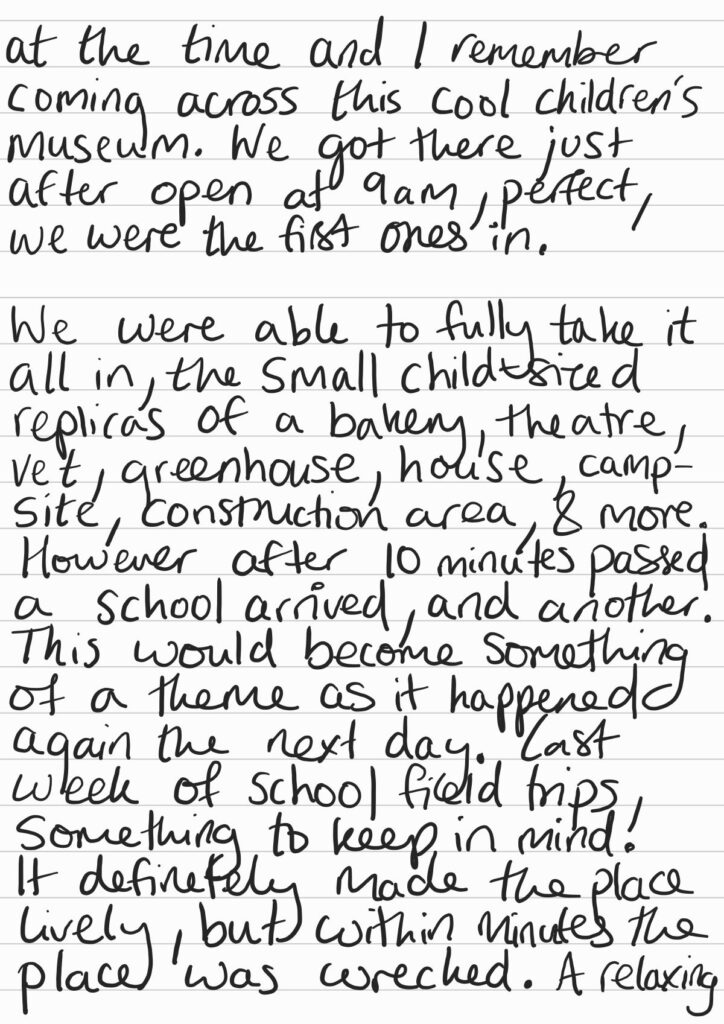 at the time and I remember
coming across this cool children's
museum. We got there just
after open at 9am, perfect,
we were the first ones in.

We were able to fully take it
all in, the small child-sized
replicas of a bakery, theatre,
vet, greenhouse, house, camp-
site, construction area, & more.
However after 10 minutes passed
a school arrived, and another.
This would become something
of a theme as it happened
again the next day. Last
week of school field trips,
something to keep in mind!
It definetely made the place
lively, but within minutes the
place was wrecked. A relaxing